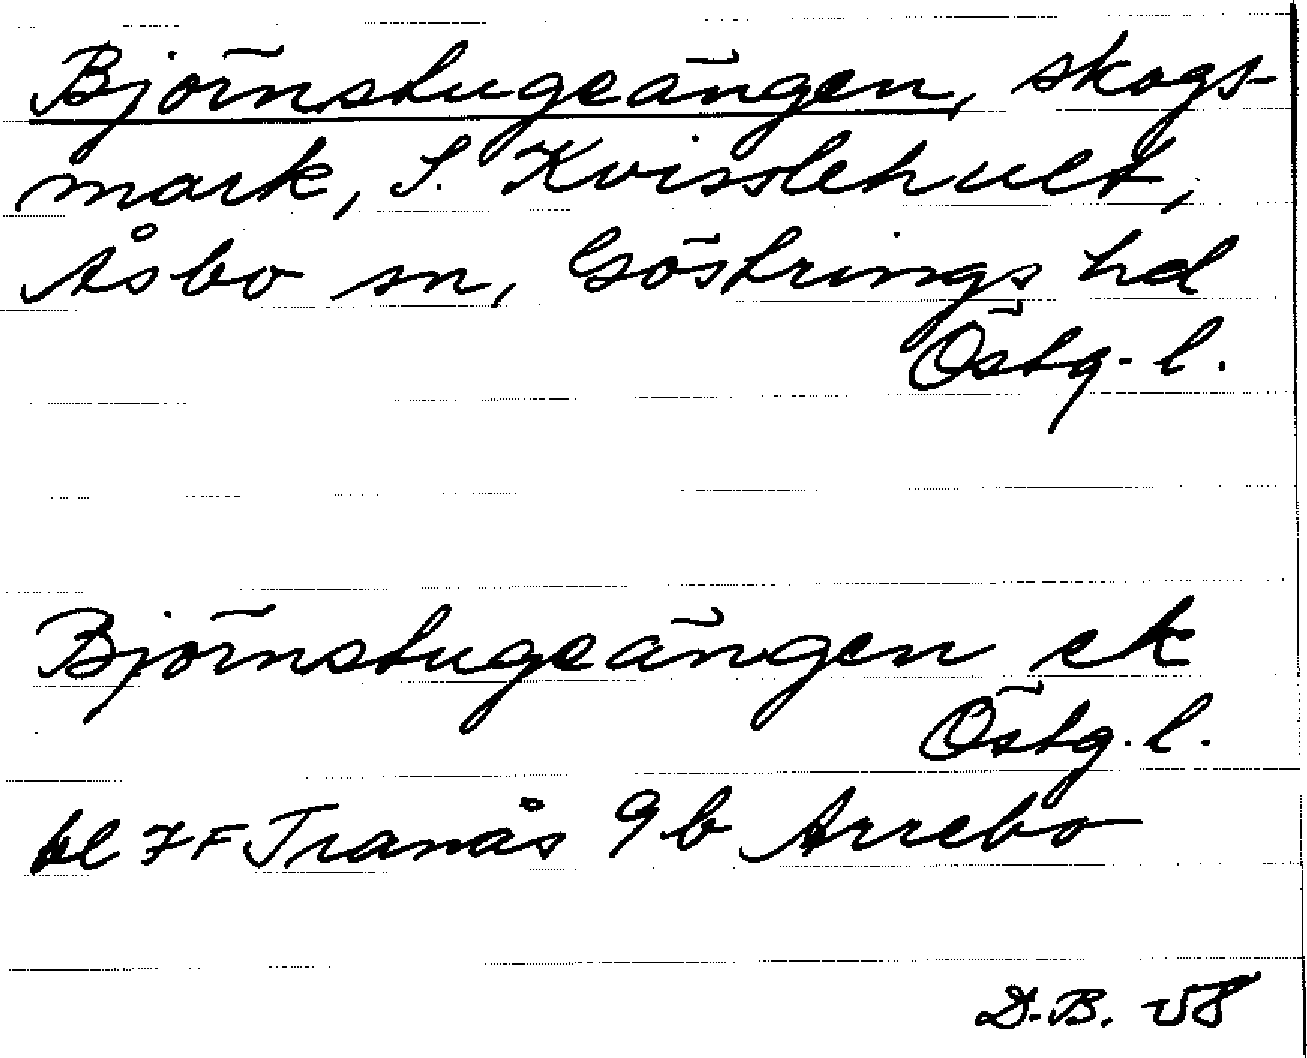 Björnstugeängen, skogs-
mark, S. Kvisslehult,
Åsbo sn, Göstrings hd
Östg. l.
Björnstugeängen ek
Östg. l.
bl 7F Tranås 9b Arrebo
D.B. 58